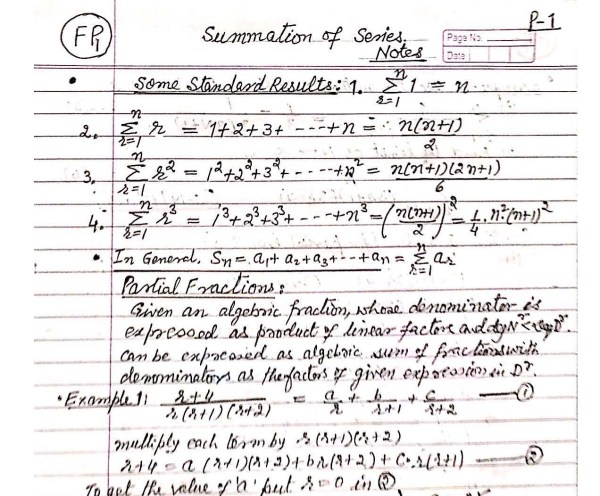 FP1 Summation of Series. P-1
Notes Page No.
Date
• Some Standard Results: 1. \sum_{r=1}^{n} 1 = n.
2. \sum_{r=1}^{n} r = 1+2+3+ ----+n = n(n+1)/2
3. \sum_{r=1}^{n} r² = 1²+2²+3²+ ----+n² = n(n+1)(2n+1)/6
4. \sum_{r=1}^{n} r³ = 1³+2³+3³+ ---+n³ = (n(n+1)/2)² = 1/4 . n²(n+1)²
• In General, Sn = a₁+ a₂+a₃+--+an = \sum_{r=1}^{n} ar
Partial Fractions:
Given an algebric fraction, whose denominator is
expressed as product of linear factors and deg Nʳ < deg Dʳ.
can be expressed as algebric sum of fractions with
denominators as the factors of given expression in Dʳ.
• Example 1: r+4 / r(r+1)(r+2) = a/r + b/r+1 + c/r+2 — ①
multiply each term by r(r+1)(r+2)
r+4 = a(r+1)(r+2)+br(r+2)+c.r(r+1) — ②
To get the value of 'a' put r=0 in ②